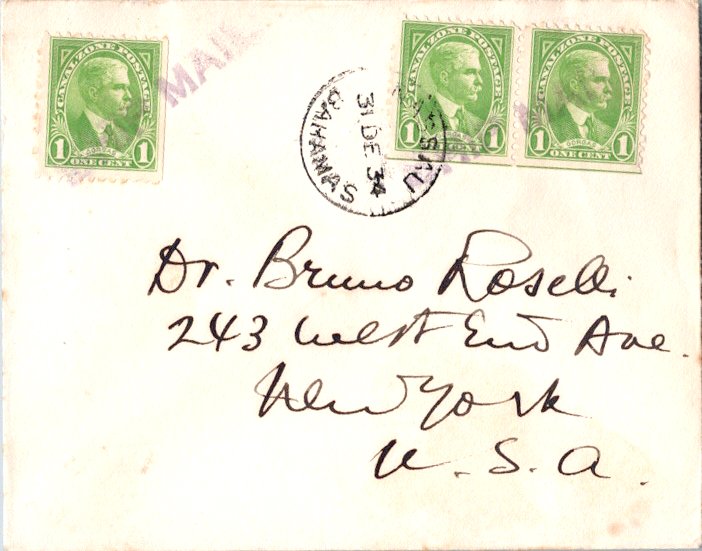 CANAL ZONE POSTAGE
GORGAS
1 1
ONE CENT
MAIL
NASSAU
31 DE 34
BAHAMAS
CANAL ZONE POSTAGE
GORGAS
1 1
CANAL ZONE POSTAGE
GORGAS
1 1
ONE CENT
Dr. Bruno Roselli
243 West End Ave.
New York
U. S. A.